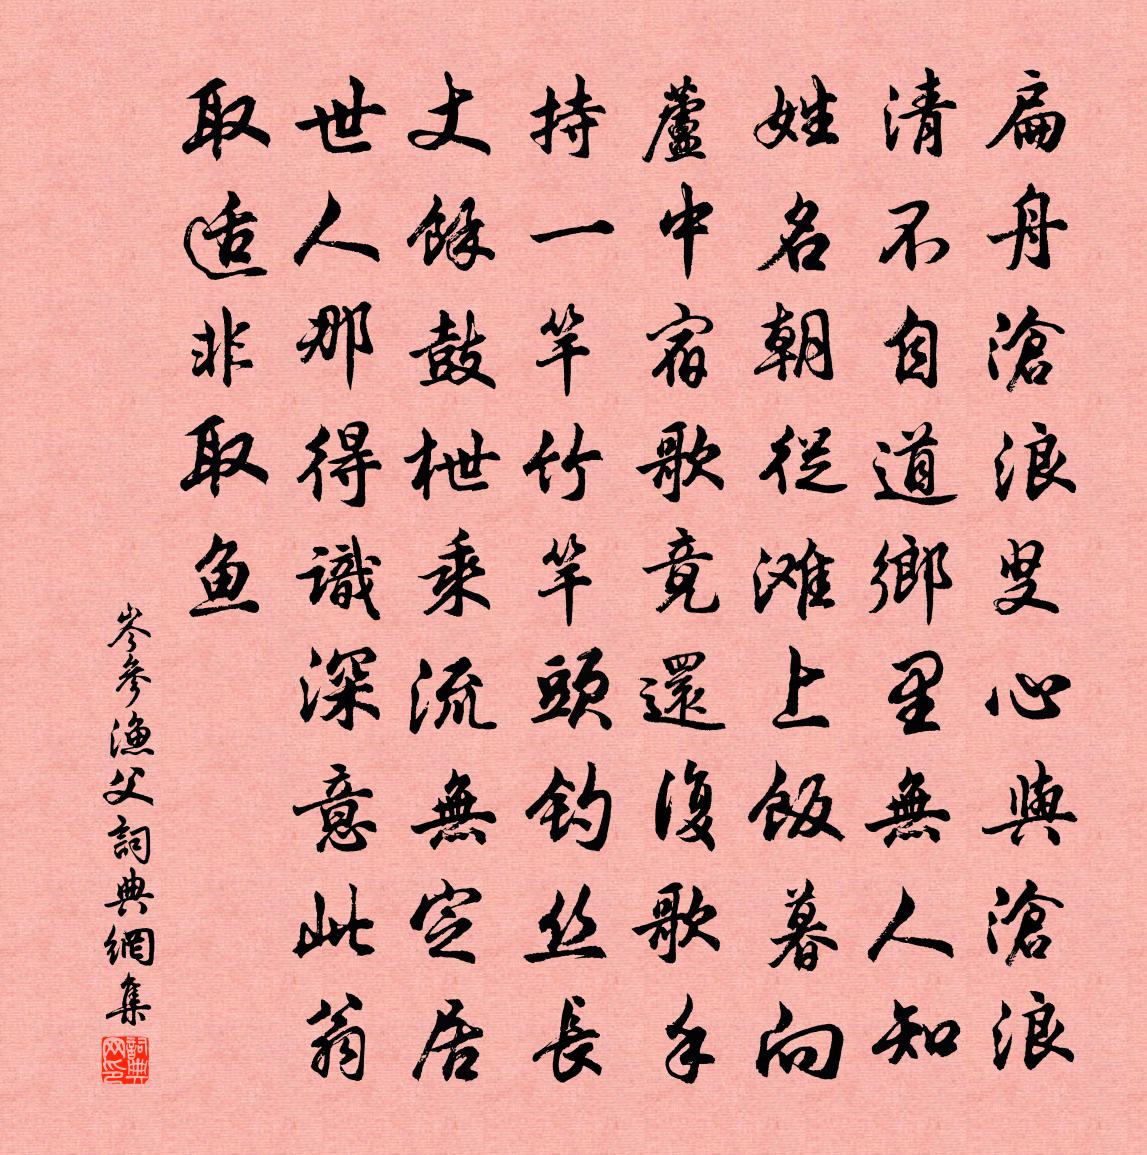 扁舟滄浪叟心與滄浪
清不自道鄉里無人知
姓名朝從滩上飯暮向
蘆中宿歌竟還復歌手
持一竿竹竿頭釣丝長
丈餘鼓枻乘流無定居
世人那得識深意此翁
取适非取鱼
岑參漁父詞典網集
詞典网印